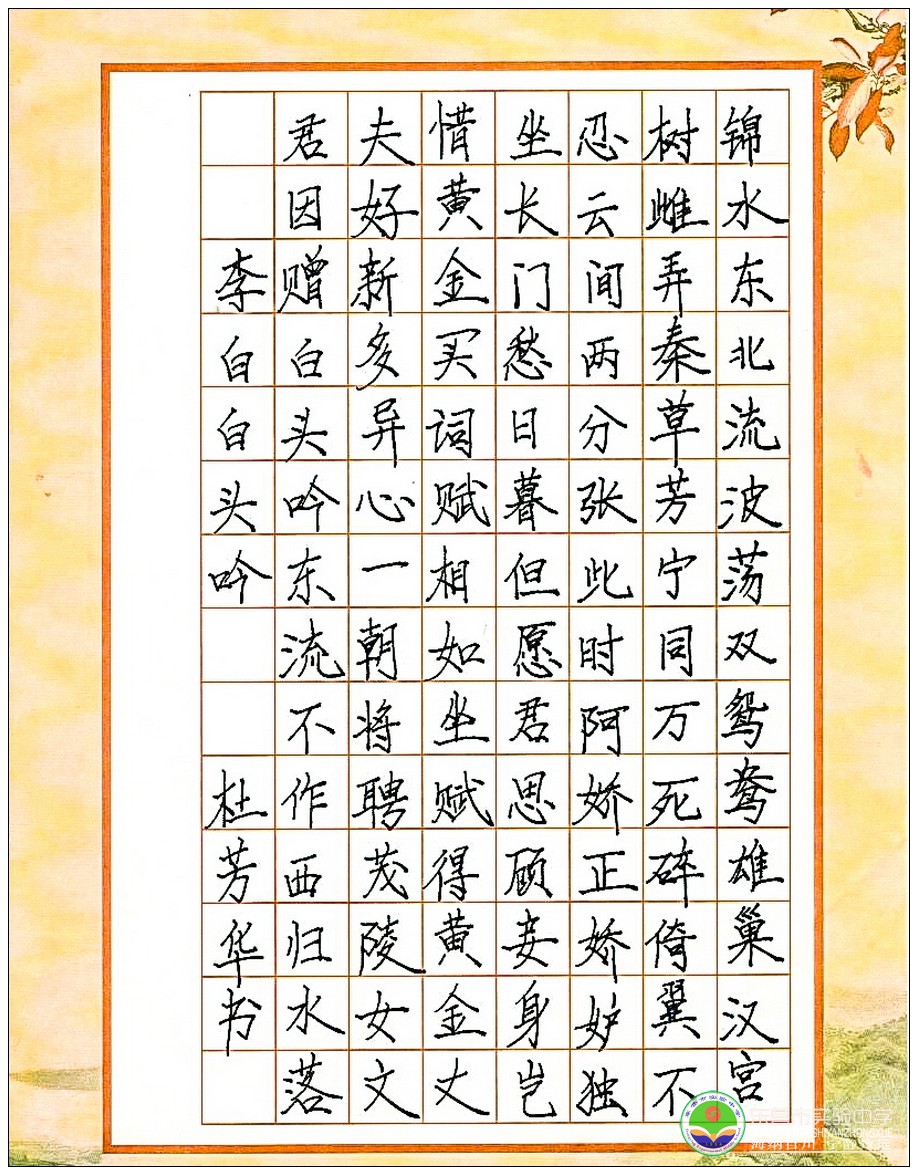 锦水东北流波荡双鸳鸯雄巢汉宫
树雌弄秦草芳宁同万死碎倚翼不
忍云间两分张此时阿娇正娇妒独
坐长门愁日暮但愿君思顾妾身岂
惜黄金买词赋相如坐赋得黄金丈
夫好新多异心一朝将聘茂陵女文
君因赠白头吟东流不作西归水落
李白白头吟 杜芳华书
东营市实验中学
SHIYANZHONGXUE